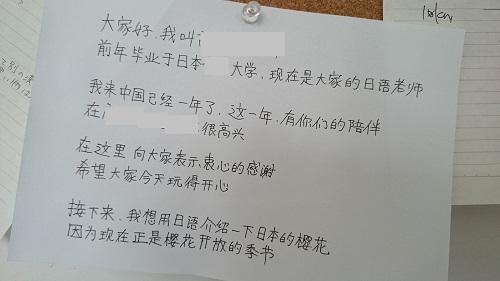 大家好，我叫
前年毕业于日本 大学，现在是大家的日语老师
我来中国已经一年了，这一年，有你们的陪伴
在 很高兴
在这里 向大家表示衷心的感谢
希望大家今天玩得开心
接下来，我想用日语介绍一下日本的樱花
因为现在正是樱花开放的季节